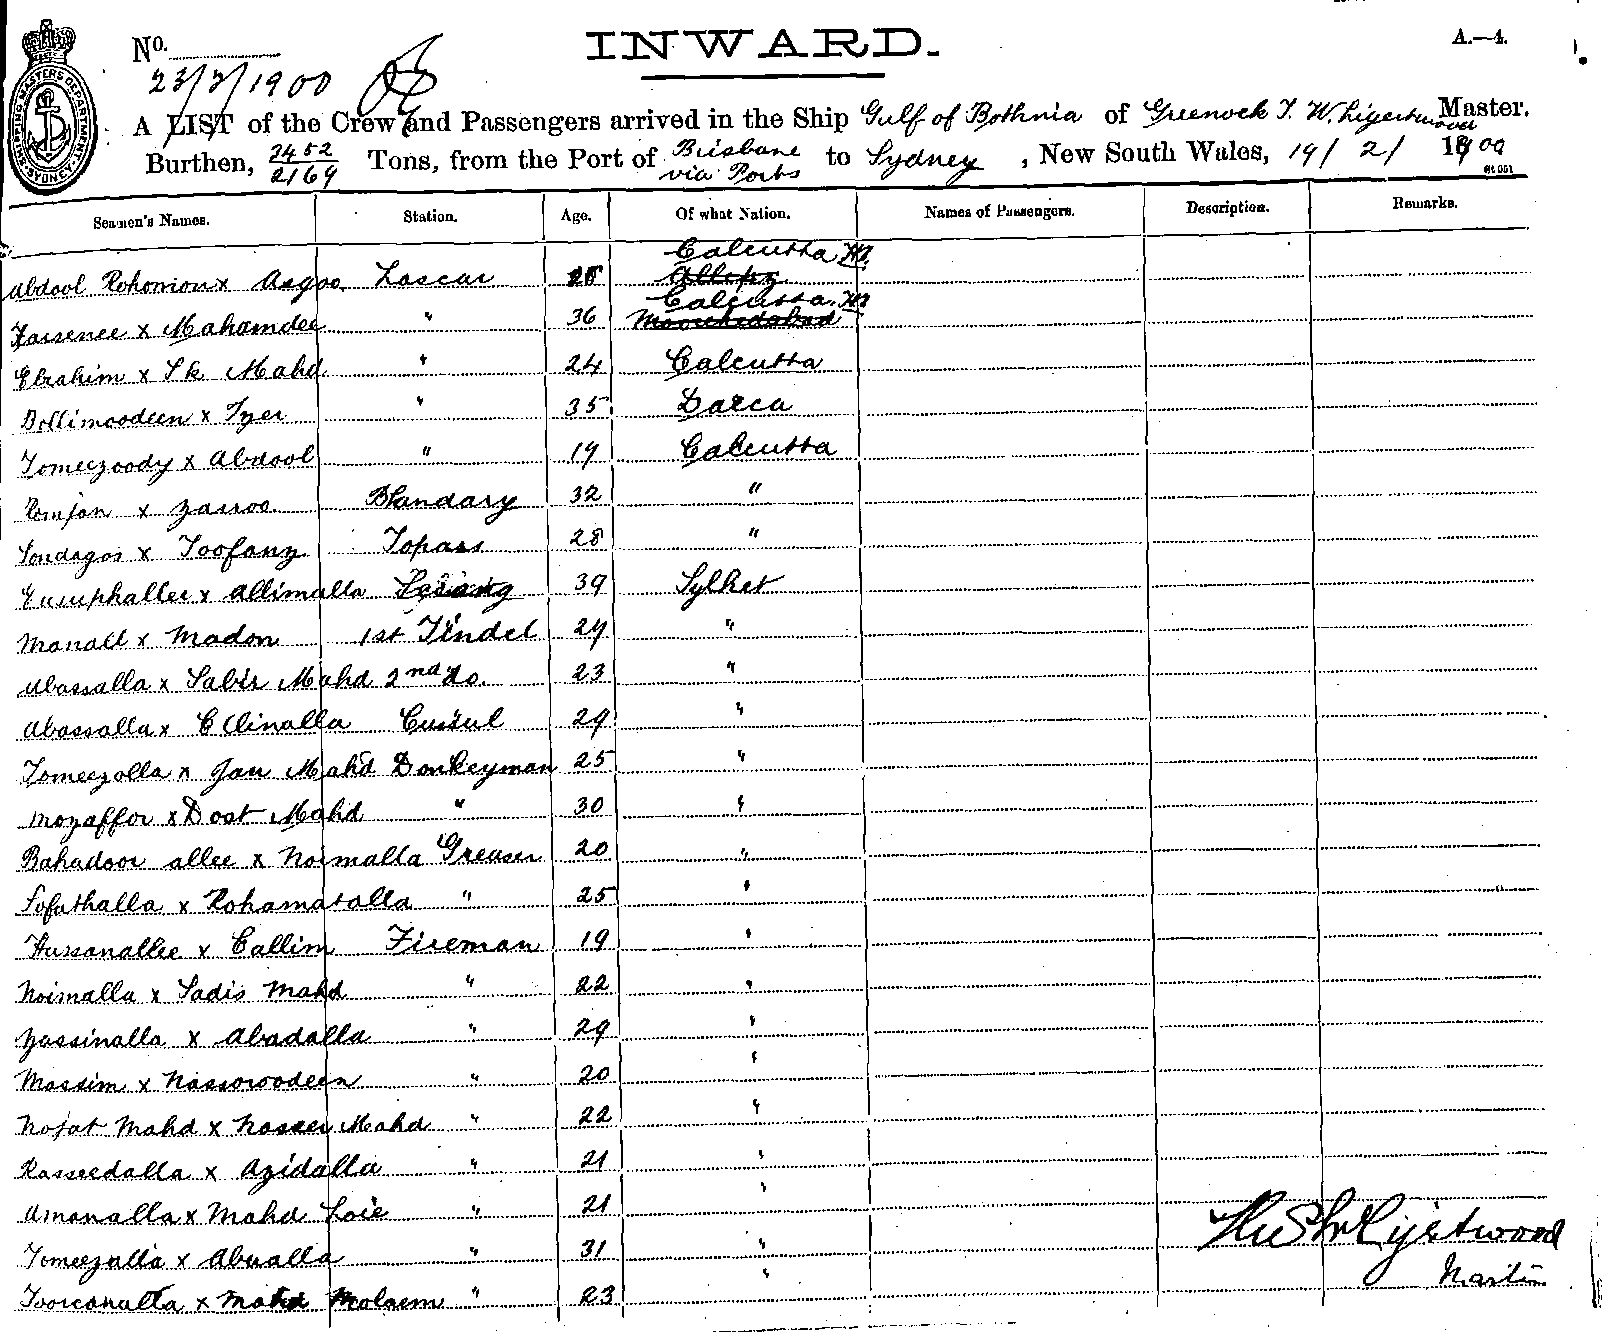 No.
INWARD.
A.—4.
23/2/1900
A LIST of the Crew and Passengers arrived in the Ship Gulf of Bothnia of Greenock T. W. Master.
Burthen, 2452/2169 Tons, from the Port of Brisbane via Ports to Sydney, New South Wales, 19/2/1900
SHIPPING MASTERS DEPARTMENT SYDNEY
Seamen's Names. Station. Age. Of what Nation. Names of Passengers. Description. Remarks.
Calcutta
Abdool Rohomon x Asgoo Lascar
Calcutta
x Mahamdee " 36
Ebrahim x Sk Mahd " 24 Calcutta
Dollimoodeen x Tyer " 35 Dacca
Tomeezoody x Abdool " 19 Calcutta
Romjan x Zassoo Bhandary 32 "
Sondagor x Toofany Topass 28 "
x Allimulla 39 Sylhet
Manall x Madon 1st Tindel 29 "
Abassalla x Sabir Mahd 2nd do. 23 "
Abassalla x Elinalla Cussul 29 "
Tomeezolla x Jan Mahd Donkeyman 25 "
Mozaffor x Dost Mahd " 30 "
Bahadoor allee x Noimalla Greaser 20 "
Sofathalla x Rohamatalla " 25 "
Hussanallee x Callim Fireman 19 "
Noimalla x Sadis Mahd " 22 "
Yassinalla x Abadalla " 29 "
Massim x Nassoroodeen " 20 "
Nojat Mahd x Nasser Mahd " 22 "
Rasseedalla x Azidalla " 21 "
Amanalla x Mahd Loie " 21 "
Tomeezalla x Abualla " 31 "
x Mahd Molaem " 23 "